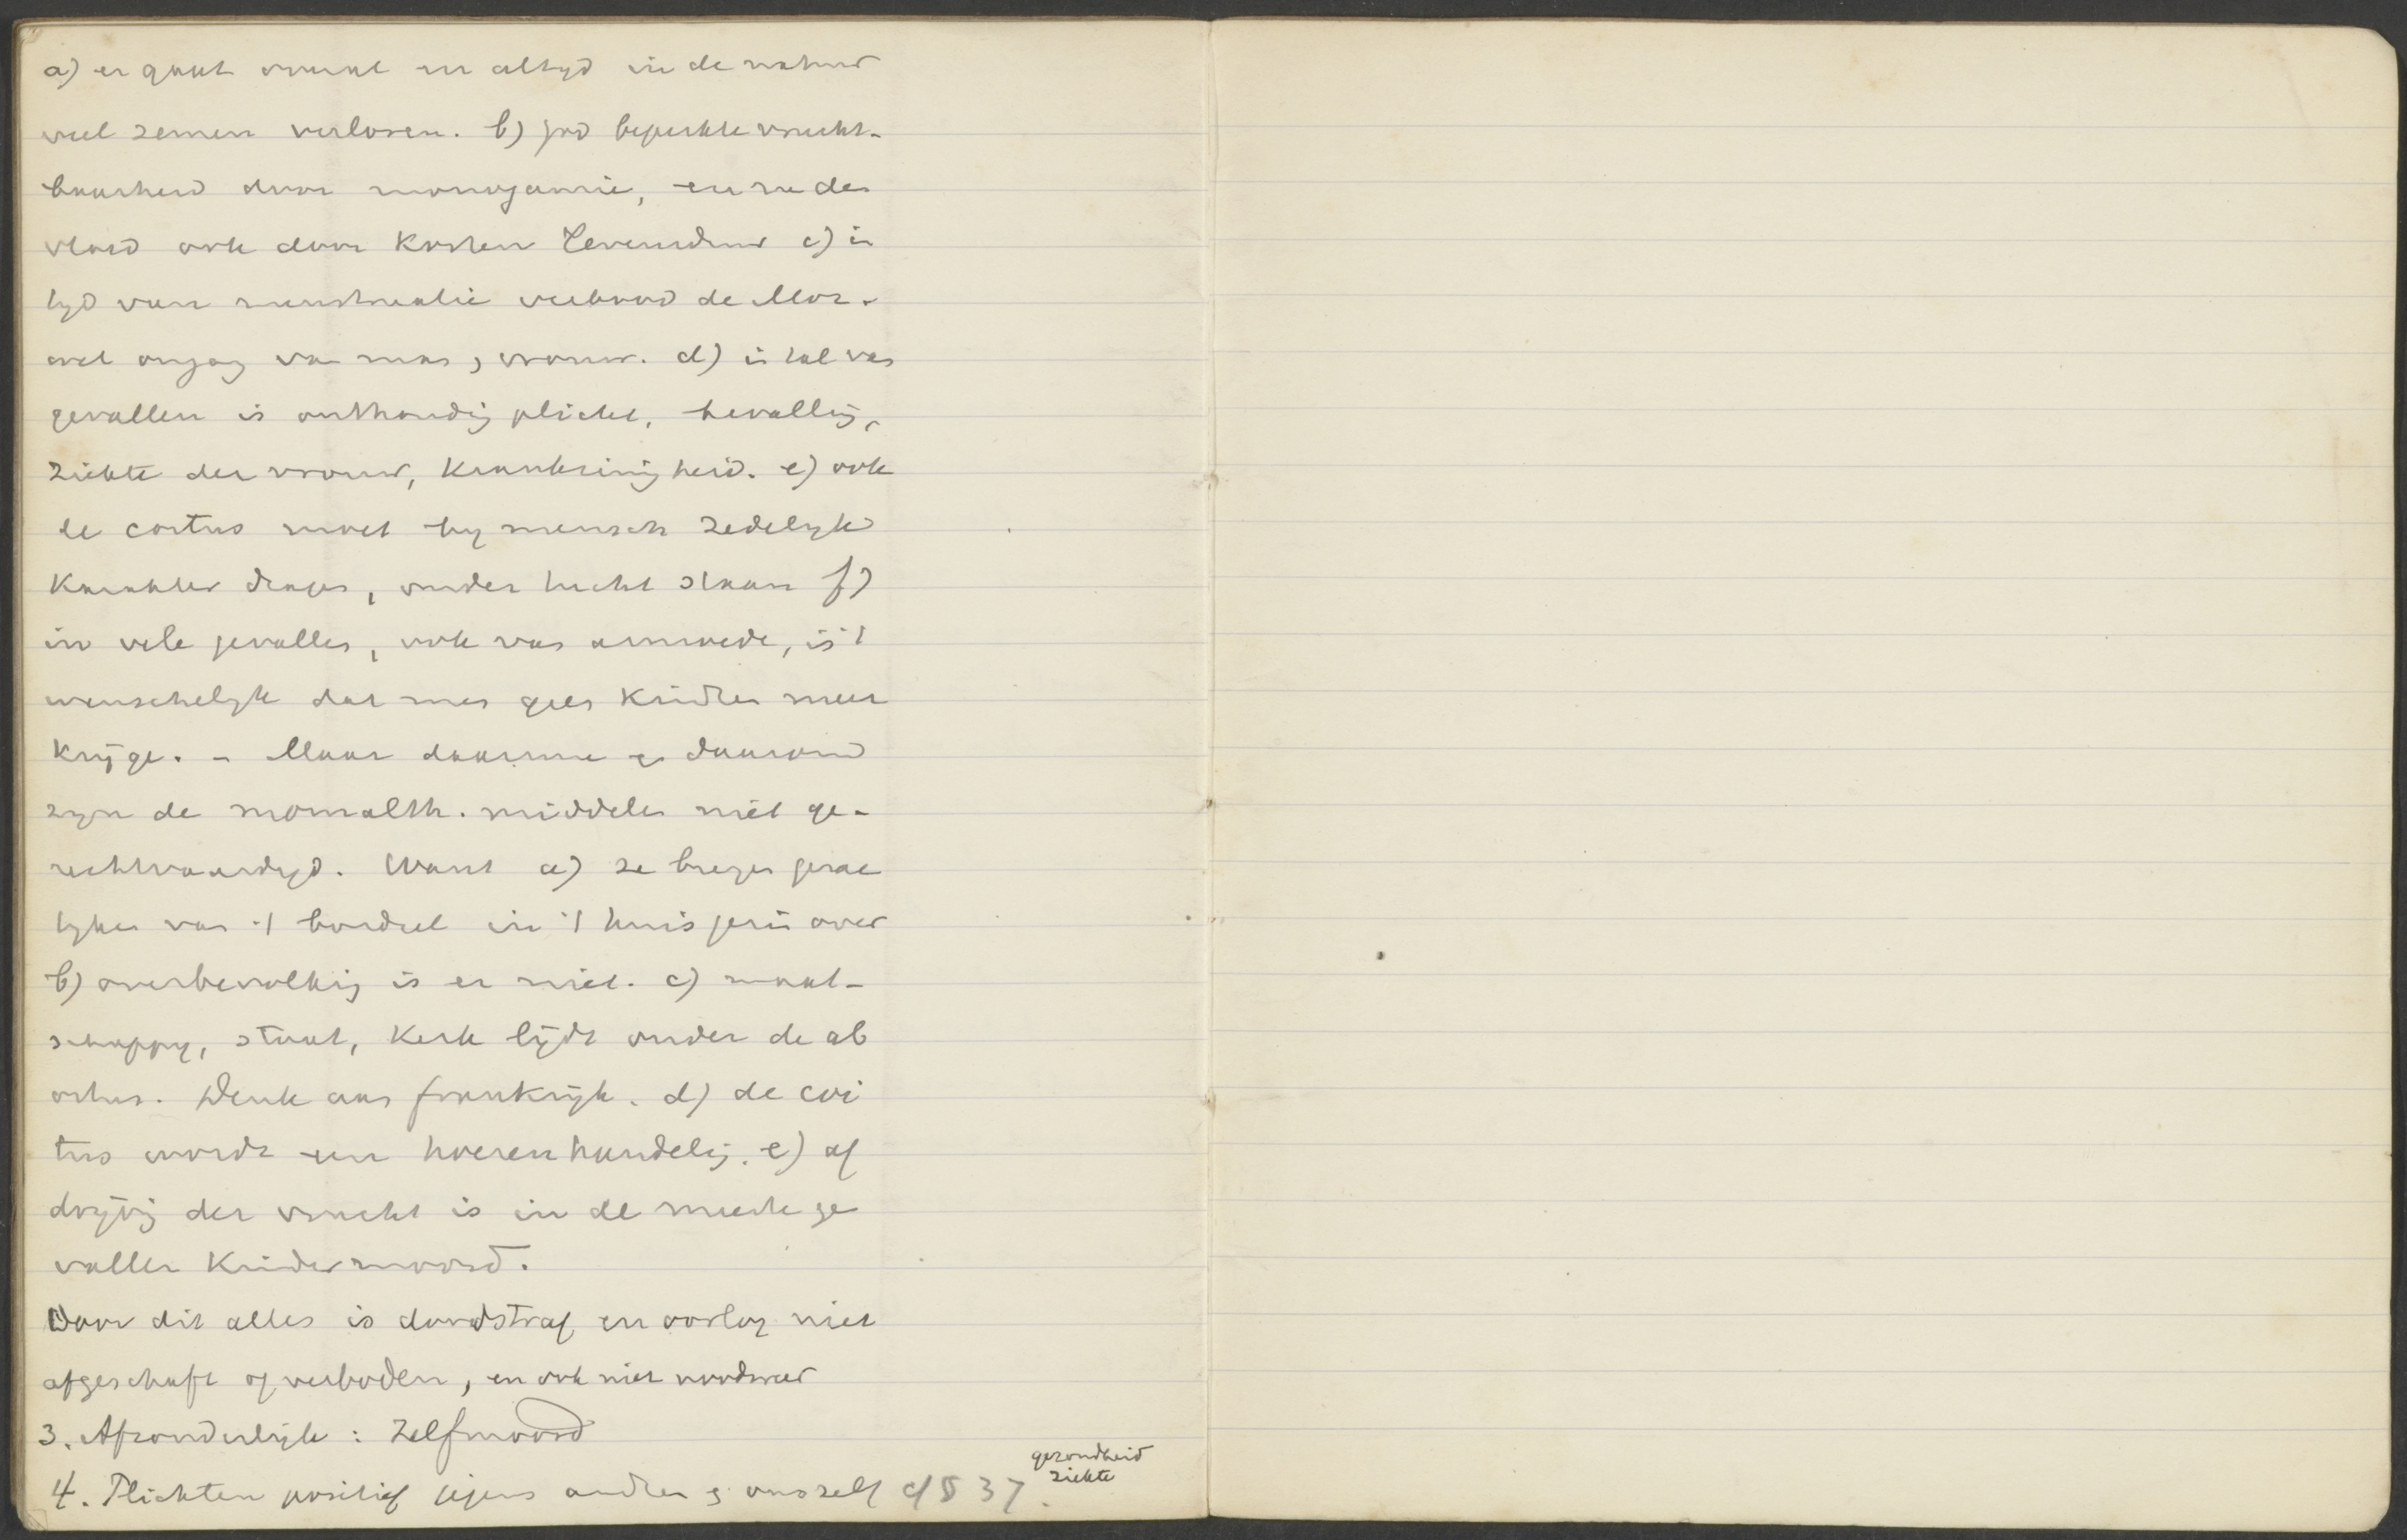 a) er gaat overal en altyd in de natuur
veel semen verloren. b) God beperkte vrucht-
baarheid door monogamie, en na den
vloed ook door korten levensduur c) in
tyd van menstruatie verbood de Moz.
wet omgang van man & vrouw. d) in tal van
gevallen is onthouding plicht, bevalling,
ziekte der vrouw, krankzinnigheid. e) ook
de coitus moet by mensch zedelyk
karakter dragen, onder tucht staan f)
in vele gevallen, ook van armoede, is 't
wenschelyk dat men geen kindren meer
kryge. - Maar daarmee en daarom
zyn de neomalth. middelen niet ge-
rechtvaardigd. Want a) ze brengen
van 't bordeel in 't huisgezin over
b) overbevolking is er niet. c) maat-
schappy, staat, kerk lydt onder de ab
ortus. Denk aan Frankryk. d) de coi
tus wordt een hoerenhandeling. e) af
dryving der vrucht is in de meeste ge
vallen kindermoord.
Door dit alles is doodstraf en oorlog niet
afgeschaft of verboden, en ook niet
3. Afzonderlyk: Zelfmoord
4. Plichten positief jegens andren & onszelf cf § 37.
gezondheid
ziekte